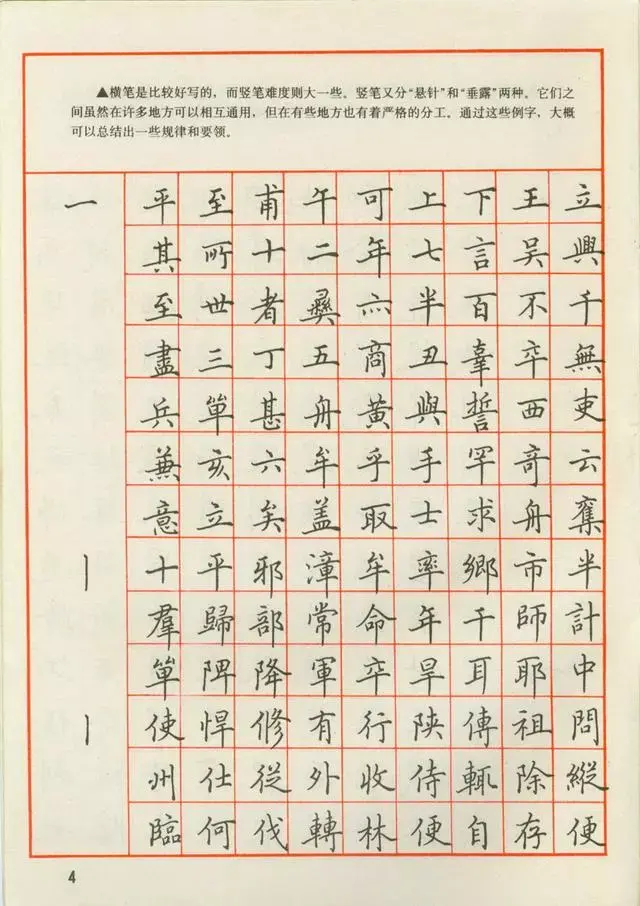 ▲横笔是比较好写的，而竖笔难度则大一些。竖笔又分“悬针”和“垂露”两种。它们之
间虽然在许多地方可以相互通用，但在有些地方也有着严格的分工。通过这些例字，大概
可以总结出一些规律和要领。
一 平 至 甫 午 可 上 下 王 立
其 所 十 二 年 七 言 吴 興
至 世 者 彝 亦 半 百 不 千
盡 三 丁 五 商 丑 辜 卒 無
兵 箪 甚 舟 黄 與 誓 西 吏
兼 亥 六 牟 乎 手 罕 奇 云
意 立 矣 盖 取 士 求 舟 奪
丨 十 平 邪 漳 牟 率 鄉 市 半
羣 歸 部 常 命 年 干 師 計
箪 陴 降 軍 卒 旱 耳 耶 中
丨 使 悍 修 有 行 陝 傳 祖 問
州 仕 從 外 收 侍 輒 除 縱
臨 何 伐 轉 林 便 自 存 便
4